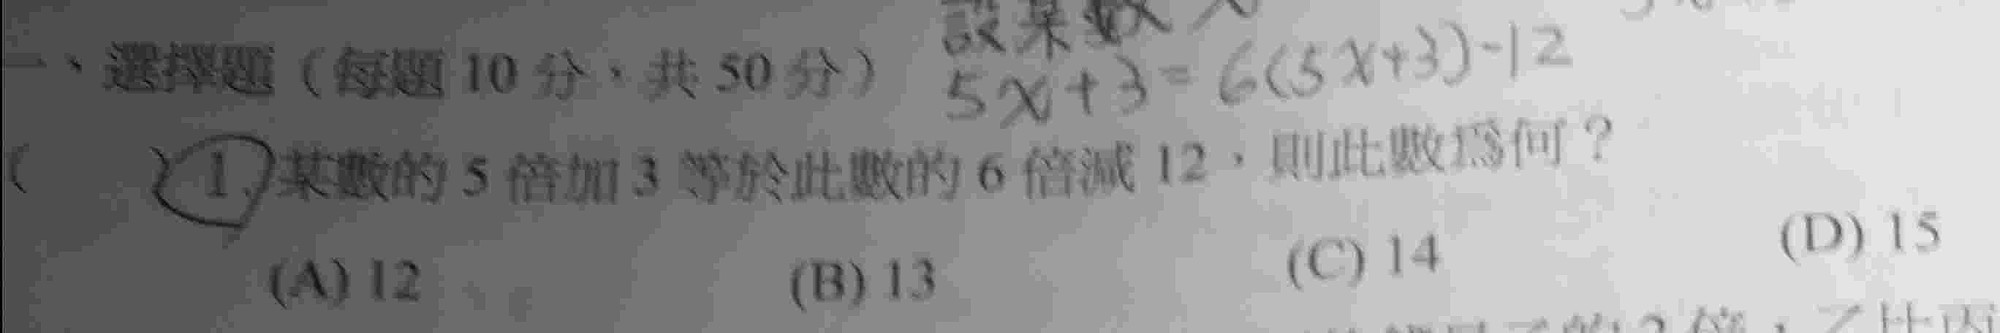 設某數 x
一、選擇題（每題 10 分，共 50 分）
5x+3=6(5x+3)-12
( ) 1. 某數的 5 倍加 3 等於此數的 6 倍減 12，則此數為何？
(A) 12 (B) 13 (C) 14 (D) 15
的 2 倍，乙比丙